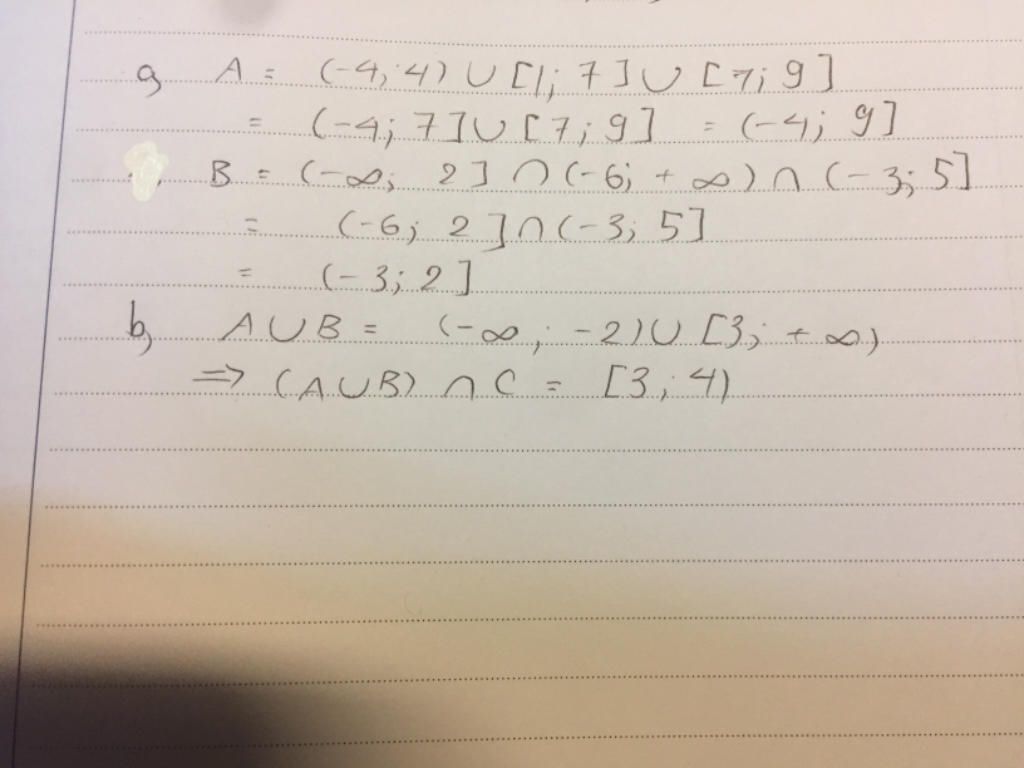 a, A = (-4; 4) ∪ [1; 7] ∪ [7; 9]
= (-4; 7] ∪ [7; 9] = (-4; 9]
B = (-∞; 2] ∩ (-6; + ∞) ∩ (-3; 5]
= (-6; 2] ∩ (-3; 5]
= (-3; 2]
b, A ∪ B = (-∞; -2) ∪ [3; + ∞)
=> (A ∪ B) ∩ C = [3; 4)